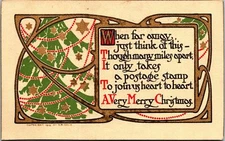 When far away,
just think of this —
Though many miles apart,
It only takes
a postage stamp
To join us heart to heart.
A Very Merry Christmas.